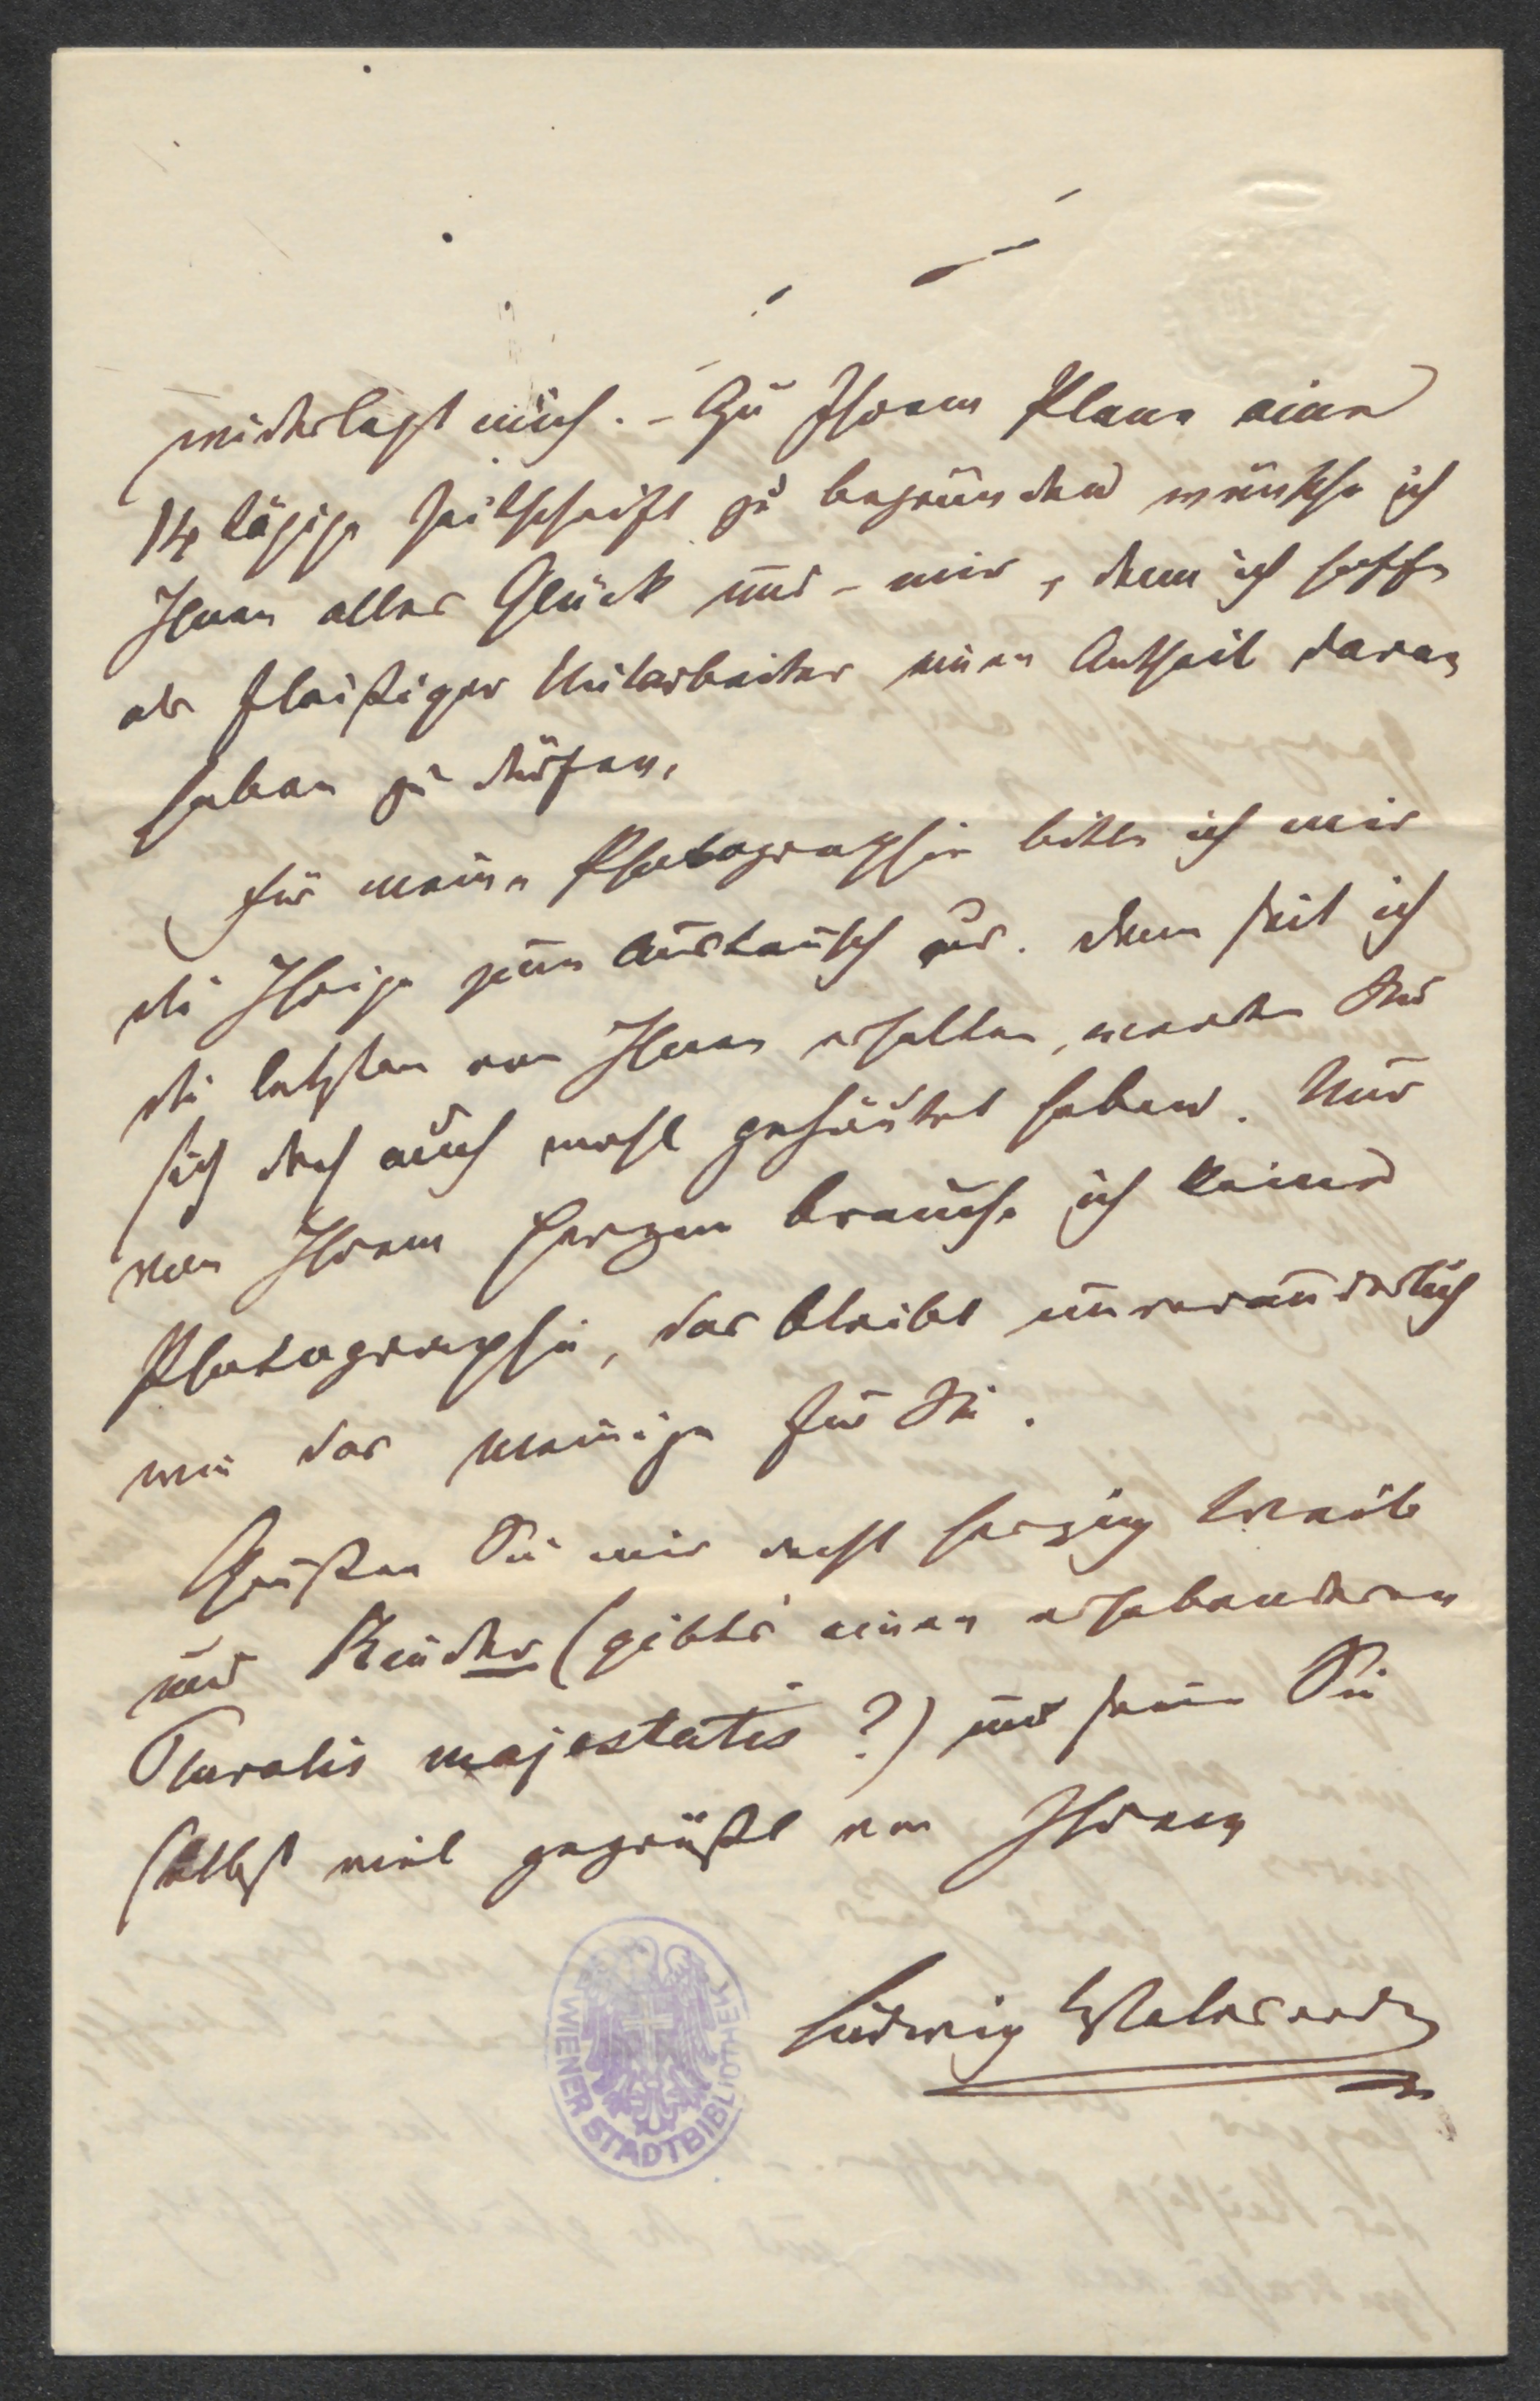 widerlegt mich. – Zu Ihrem Plane eine
14 tägige Zeitschrift zu begründen wünsche ich
Ihnen alles Glück und – mir, denn ich hoffe
als fleißiger Mitarbeiter einen Antheil daran
haben zu dürfen.
Für meine Photographie bitte ich mir
die Ihrige zum Austausch aus. Denn seit ich
die letzten von Ihnen erhalten, werden Sie
sich doch auch wohl gehäutet haben. Nur
von Ihrem Herzen brauche ich keine
Photographie, das bleibt unveränderlich
wie das meinige für Sie.
Grüßen Sie mir recht herzig Weib
und Kinder (gibt's einen erhabenderen
Pluralis majestatis?) und seien Sie
selbst viel gegrüßt von Ihrem
Ludwig Walesrode
WIENER STADTBIBLIOTHEK